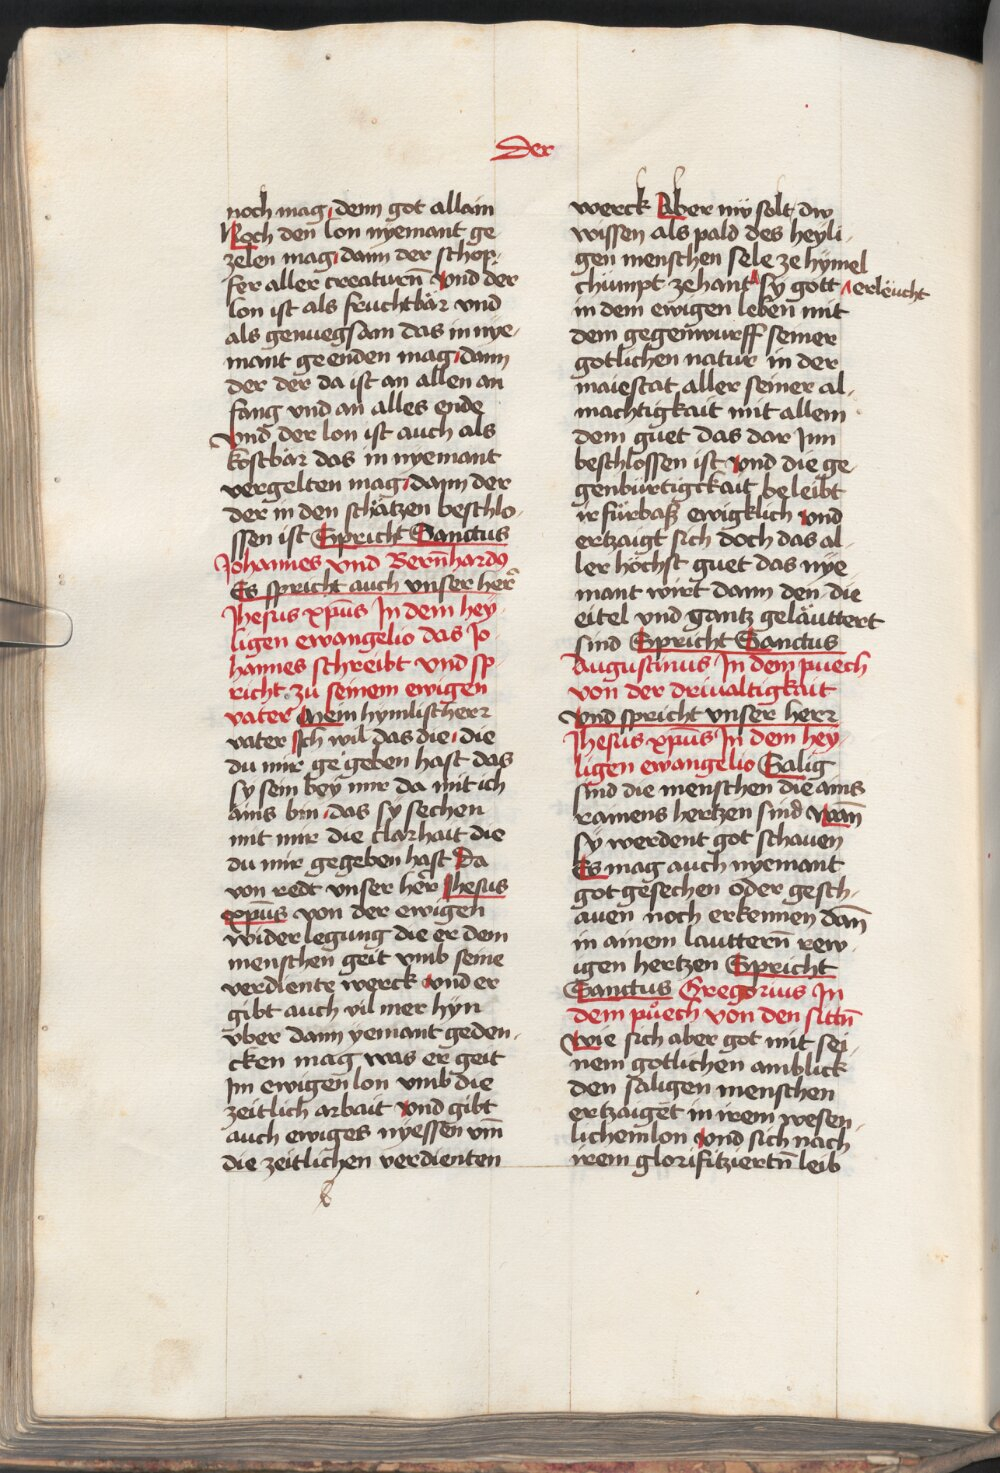 Der
noch mag, denn got allain
Noch den lon nyemant ge
zelen mag, dann der schop¬
fer aller creaturn̄ Vnd der
lon ist als fruchtbär vnd
als genuegsam das in nye¬
mant ge enden mag, dann
der der da ist an allen an
fang vnd an alles ende
Vnd der lon ist auch als
kostbär das in nyemant
vergelten mag, dann der
der in den schätzen beschlo¬
ssen ist Spricht Sanctus
Johannes vnd Bern̄hardꝰ
Es spricht auch vnser her̄
Jhesus xp̄us In dem hey¬
ligen ewangelio das Jo¬
hannes schreibt vnd sp¬
richt zu seinem ewigen
vater Mein hymlischerr
vater Ich wil das die, die
du mir ge geben hast das
sy sein bey mir da mit ich
ains bin, das sy sechen
mit mir die clarhait die
du mir gegeben hast Da
von redt vnser her̄ Jhesus
xp̄us von der ewigen
wider legung die er dem
menschen geit vmb seine
verdiente werck Vnd er
gibt auch vil mer hyn
vber dann yemant geden¬
cken mag was er geit
Im ewigen lon vmb die
zeitlich arbait Vnd gibt
auch ewiges nyessen vm̄
die zeitlichen verdienten
werck Aber nŭ solt dw
wissen als pald des heyli¬
gen menschen sele ze hymel
chumpt zehant ^ sy gott ^ erleucht
in dem ewigen leben mit
dem gegenwurff seiner
gotlichen natur in der
maiestat aller seiner al¬
machtigkait mit allem
dem guet das dar Inn
beschlossen ist Vnd die ge¬
genbürtigckait beleibt
ir fürbasz ewigklich Vnd
ertzaigt sich doch das al¬
ler höchst guet das nye
mant wirt dann den die
eitel vnd gantz geläuttert
sind Spricht Sanctus
Augustinus In dem puech
von der driualtigkait
Vnd spricht vnser herr
Jhesus xp̄us In dem hey¬
ligen ewangelio Salig
sind die menschen die ains
rainens hertzen sind Wan̄
sy werdent got schauen
Es mag auch nyemant
got gesechen oder gesch¬
auen noch erkennen dan̄
in ainem lauttern̄ rew¬
igen hertzen Spricht
Sanctus Gregorius In
dem puͦech von den sittn̄
Wie sich aber got mit sei
nem gotlichen amblick
den säligen menschen
ertzaiget in irem wesen¬
lichem lon Vnd sich nach
irem glorifitziertn̄ leib